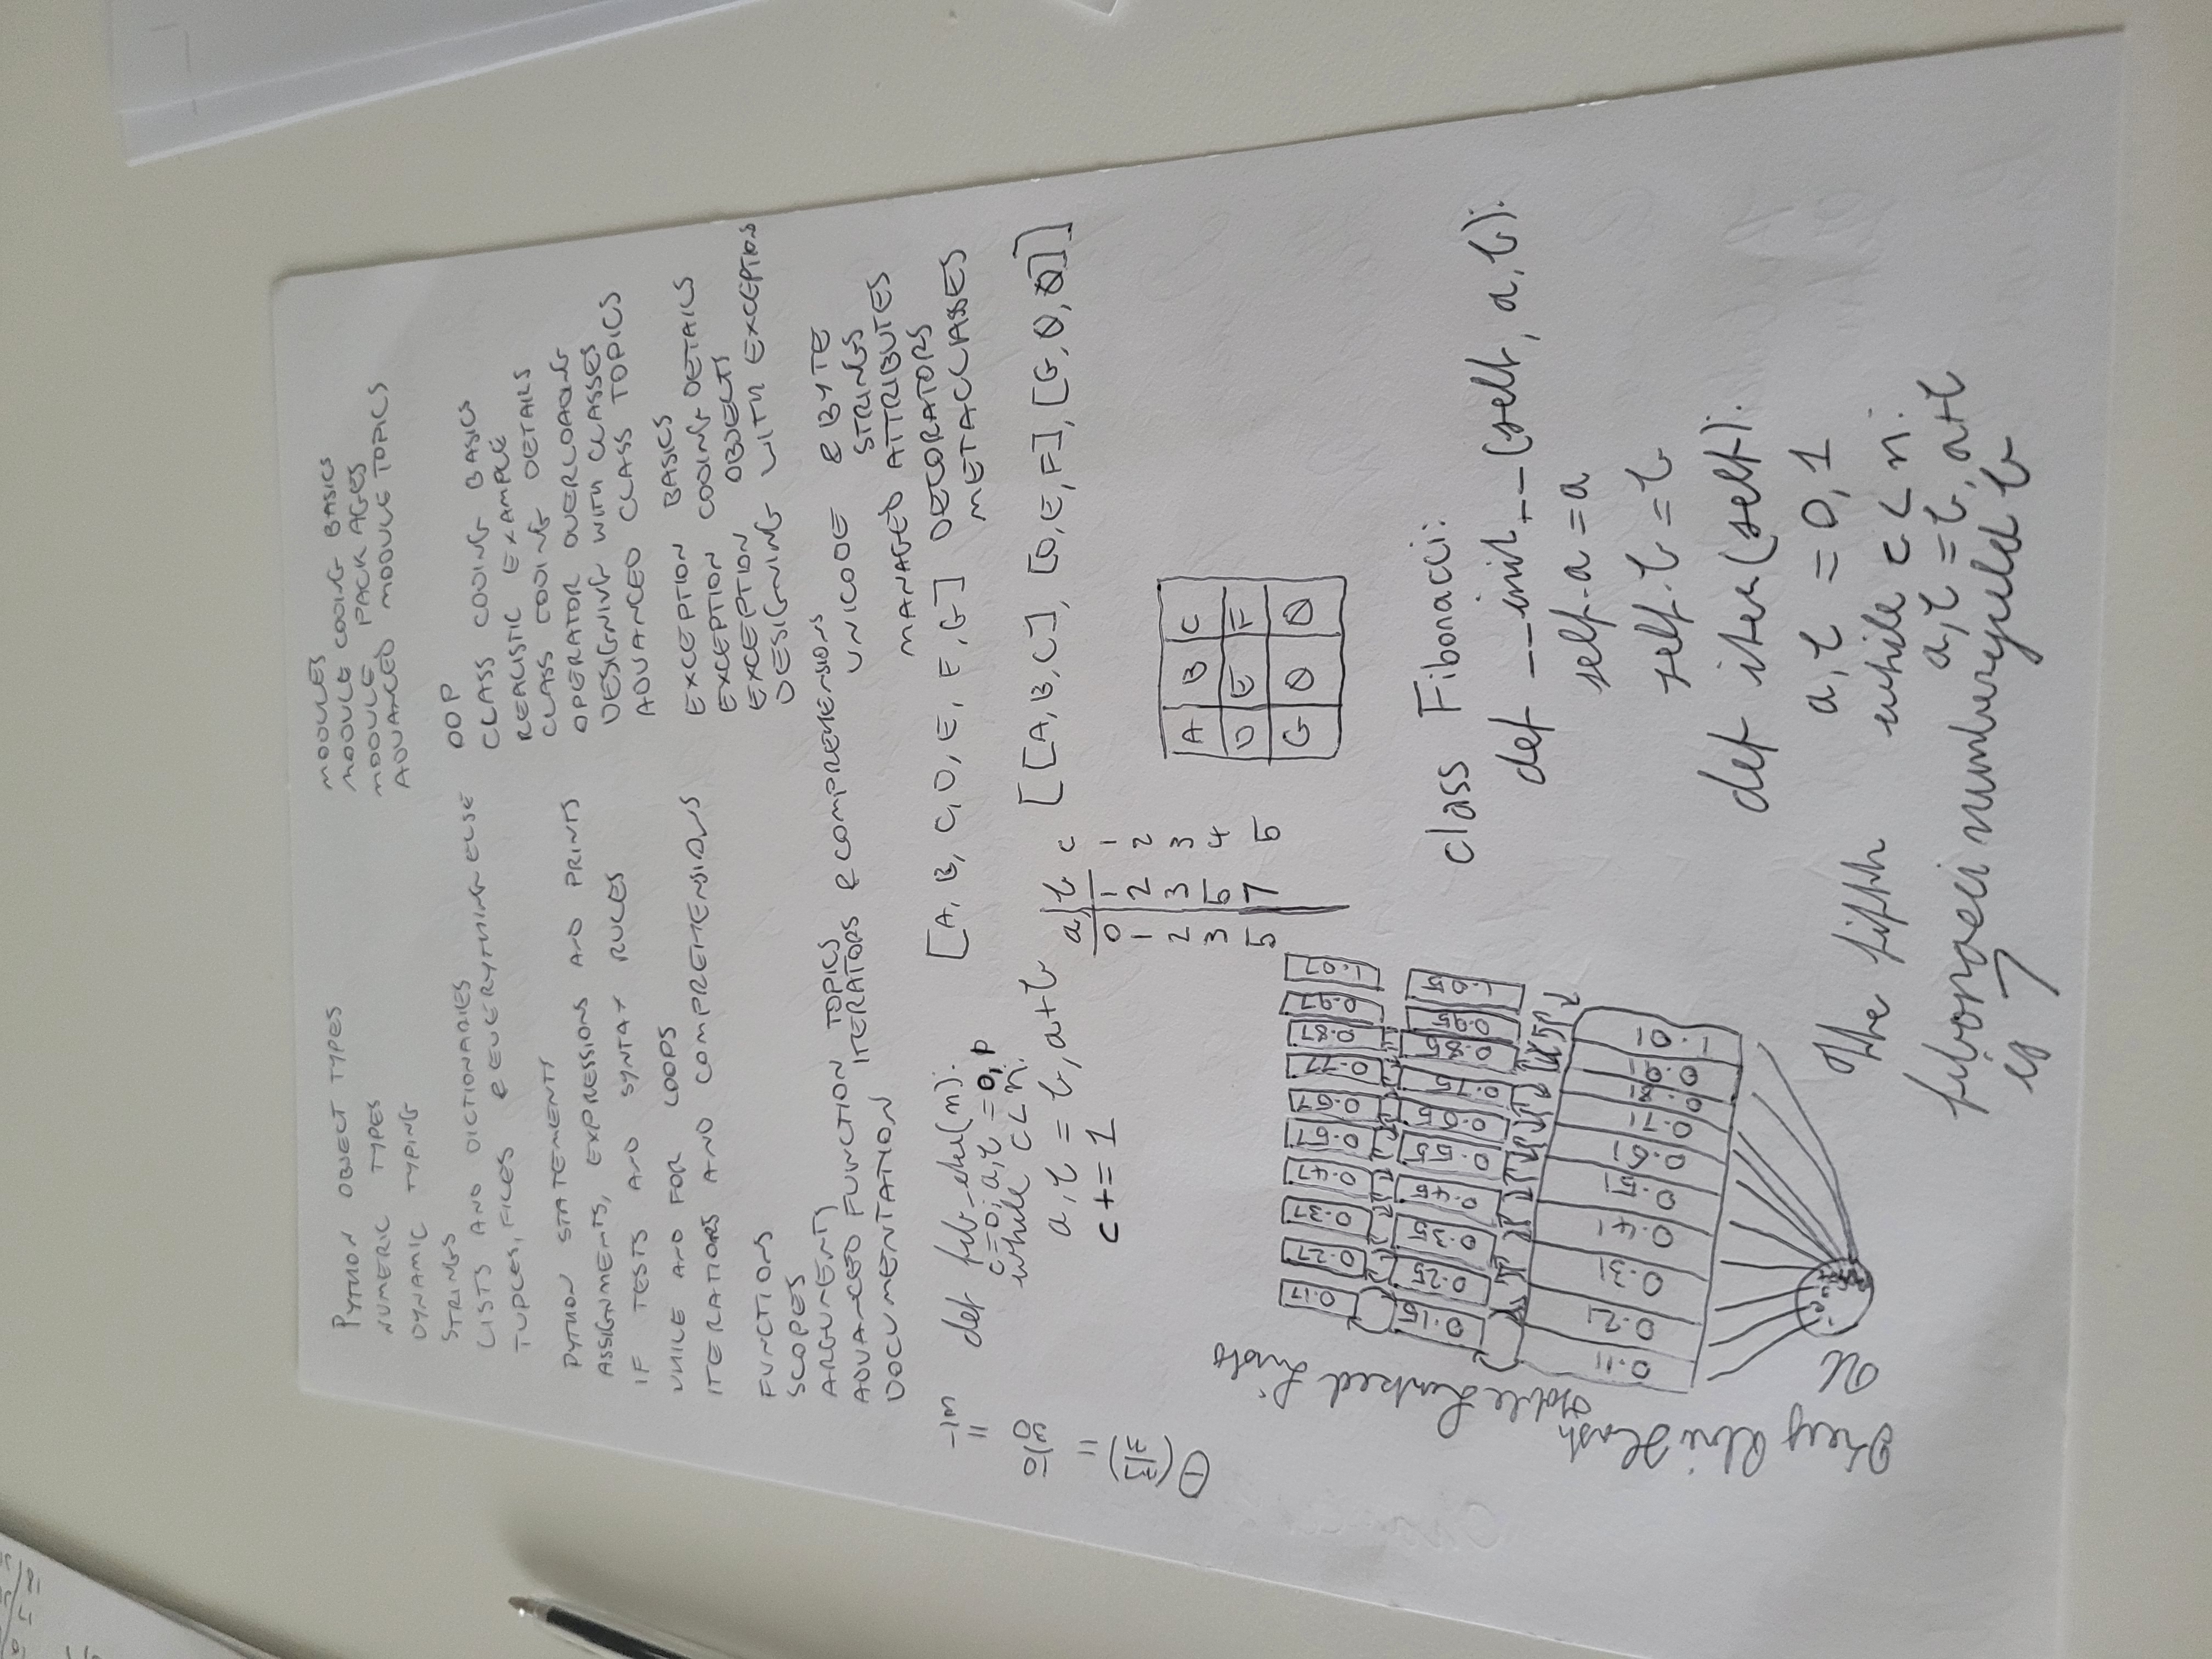 PYTHON OBJECT TYPES
NUMERIC TYPES
DYNAMIC TYPING
STRINGS
LISTS AND DICTIONARIES
TUPLES, FILES & EVERYTHING ELSE
PYTHON STATEMENTS
ASSIGNMENTS, EXPRESSIONS AND PRINTS
IF TESTS AND SYNTAX RULES
WHILE AND FOR LOOPS
ITERATIORS AND COMPREHENSIONS
FUNCTIONS
SCOPES
ARGUMENTS
ADVANCED FUNCTION TOPICS
ITERATORS & COMPREHENSIONS
DOCUMENTATION
MODULES
MODULE CODING BASICS
MODULE PACKAGES
ADVANCED MODULE TOPICS
OOP
CLASS CODING BASICS
REALISTIC EXAMPLE
CLASS CODING DETAILS
OPERATOR OVERLOADING
DESIGNING WITH CLASSES
ADVANCED CLASS TOPICS
EXCEPTION BASICS
EXCEPTION CODING DETAILS
EXCEPTION OBJECTS
DESIGNING WITH EXCEPTIONS
UNICODE & BYTE
STRINGS
MANAGED ATTRIBUTES
DECORATORS
METACLASSES
def fib_iter(n):
c=0; a,b = 0,
while c<n:
a,b = b,a+b
c += 1
[A, B, C, D, E, F, G]
[[A,B,C], [D,E,F], [G,0,0]]
a b c
0 1 1
1 2 2
2 3 3
3 5 4
5 7 5
A B C
D E F
G 0 0
Linked Lists
0.17 0.27 0.37 0.47 0.57 0.67 0.77 0.87 0.97 1.07
0.15 0.25 0.35 0.45 0.55 0.65 0.75 0.85 0.95 1.05
0.11 0.21 0.31 0.41 0.51 0.61 0.71 0.81 0.91 1.01
Key Hash
Table
U
class Fibonacci:
def __init__(self, a, b):
self.a = a
self.b = b
def iter(self):
a,b = 0,1
while c<n:
a,b = b, a+b
yield b
The fifth
fibonacci number
is 7